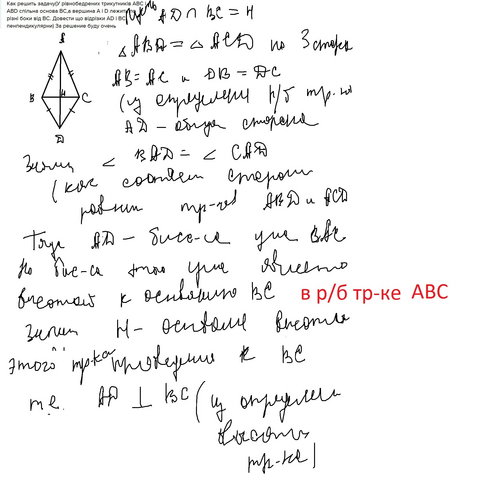 Как решить задачу(У рівнобедрених трикутників ABC і
ABD спільна основа BC,а вершина A і D лежить
різні боки від BC. Довести що відрізки AD і BC
пенпендикулярні) За решение буду очень
AD ∩ BC = H
△ABD = △ACD по 3 стор
AB = AC и DB = DC
(из определен р/б тр-ка
AD – общая сторона
Значит ∠ BAD = ∠ CAD
(как соответ сторон
равных тр-ков ABD и ACD
Тогда AD – бисс-са угла BAC
Но бис-са этого угла является
высотой к основанию BC в р/б тр-ке ABC
Значит H – основание высоты
этого тр-ка проведенно к BC
т.е. AD ⊥ BC (из определен
высоты
тр-ка)
A
B H C
D